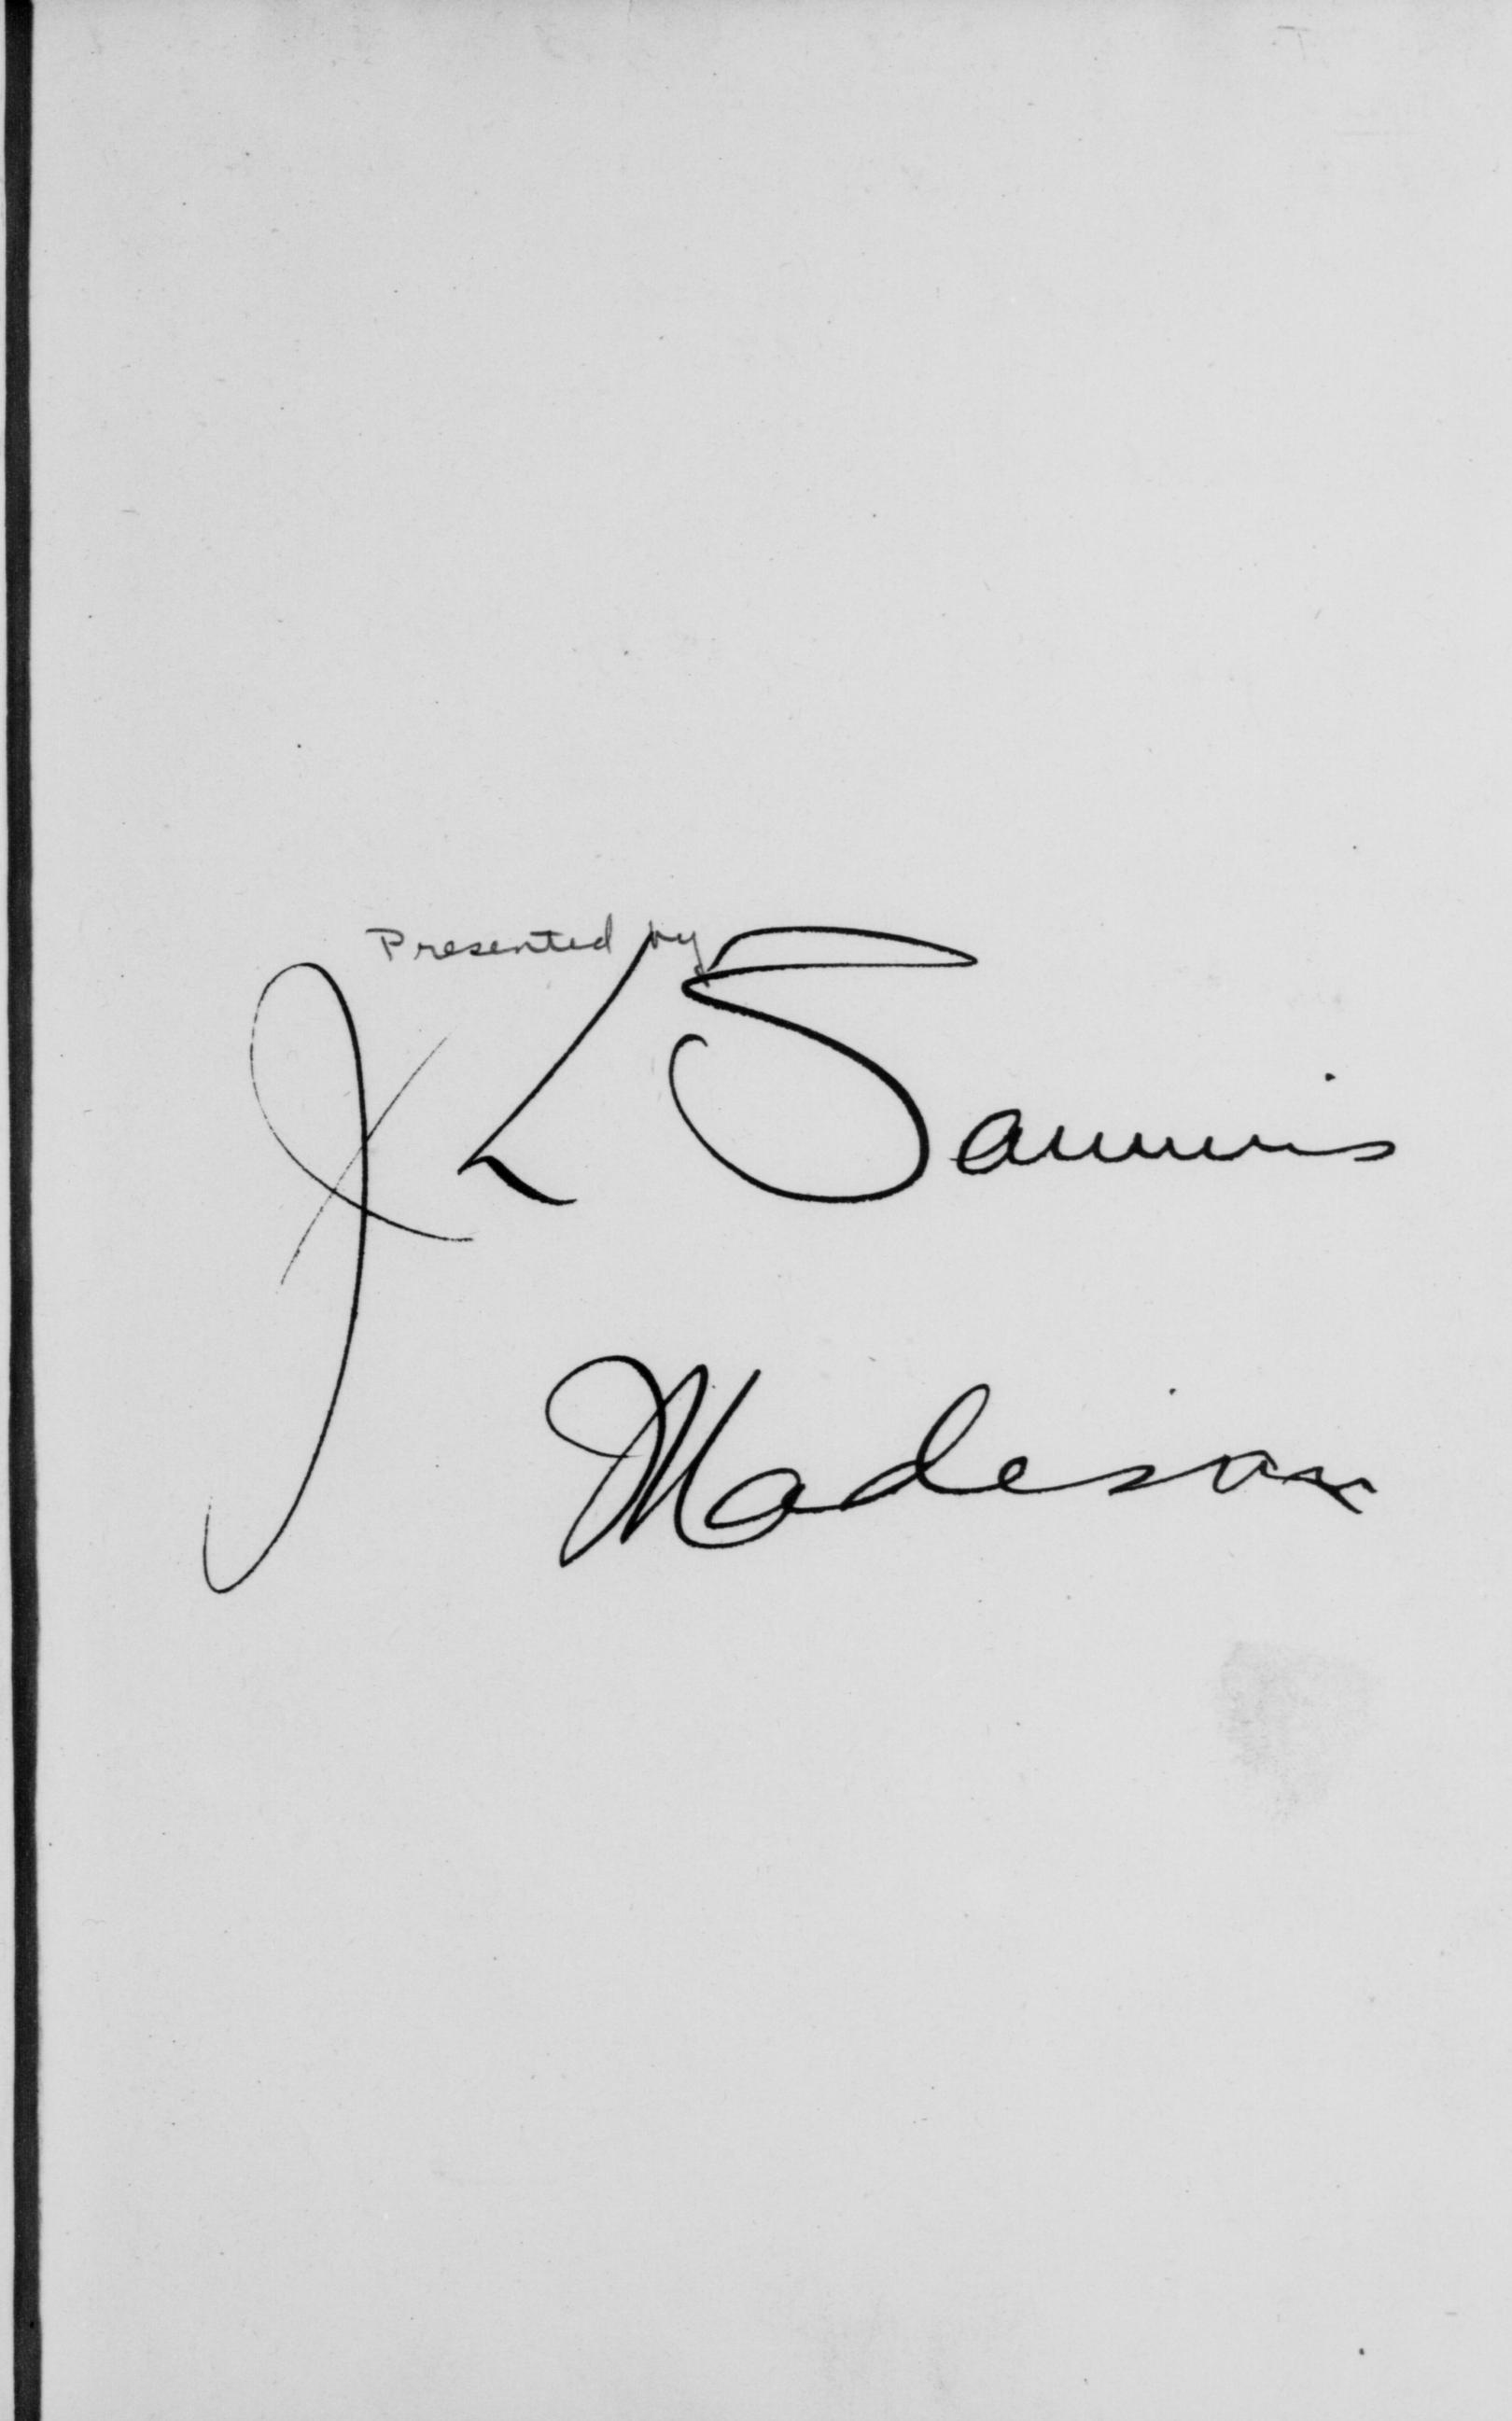 Presented by
J L Sammis
Madison